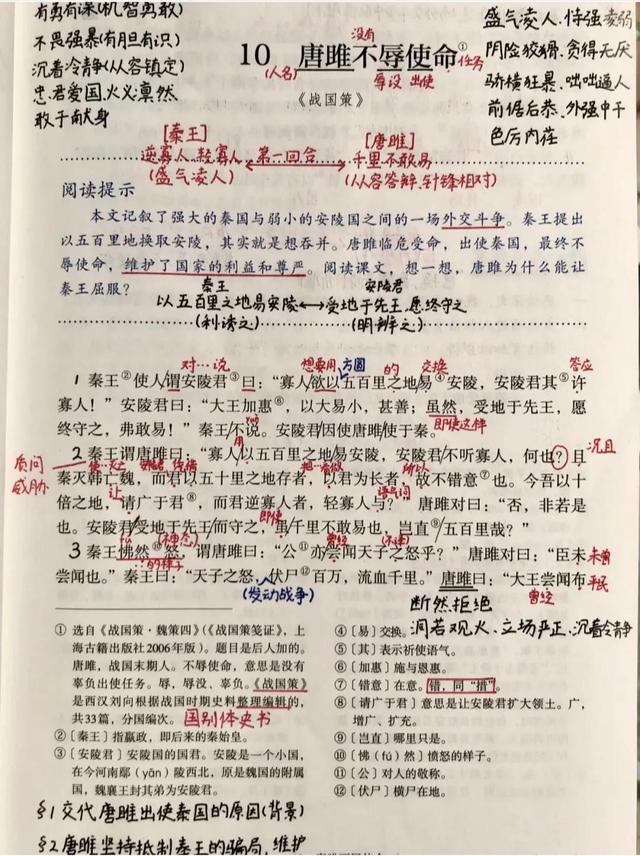 有勇有谋(机智勇敢)
不畏强暴(有胆有识)
沉着冷静(从容镇定)
忠君爱国、大义凛然
敢于献身
盛气凌人、恃强凌弱
阴险狡猾、贪得无厌
骄横狂暴、咄咄逼人
前倨后恭、外强中干
色厉内荏
没有
10 唐雎不辱使命①任务
(人名) 辱没 出使
《战国策》
[秦王] [唐雎]
逆寡人、轻寡人 第一回合 千里不敢易
(盛气凌人) (从容答辩、针锋相对)
阅读提示
本文记叙了强大的秦国与弱小的安陵国之间的一场外交斗争。秦王提出
以五百里地换取安陵，其实就是想吞并。唐雎临危受命，出使秦国，最终不
辱使命，维护了国家的利益和尊严。阅读课文，想一想，唐雎为什么能让
秦王屈服？
秦王 安陵君
以五百里之地易安陵←→受地于先王、愿终守之
(利诱之) (明辨之)
对…说 想要用 方圆 的 交换 答应
1 秦王②使人谓安陵君③曰：“寡人欲以五百里之地易④安陵，安陵君其⑤许
寡人！”安陵君曰：“大王加惠⑥，以大易小，甚善；虽然，受地于先王，愿
yuè 即使这样
终守之，弗敢易！”秦王不说。安陵君因使唐雎使于秦。
用
质问
威胁
2 秦王谓唐雎曰：“寡人以五百里之地易安陵，安陵君不听寡人，何也？且 况且
秦灭韩亡魏，而君以五十里之地存者，以君为长者，故不错意⑦也。今吾以十
让 语气词
倍之地，请广于君⑧，而君逆寡人者，轻寡人与？”唐雎对曰：“否，非若是
即使
也。安陵君受地于先王而守之，虽千里不敢易也，岂直⑨五百里哉？”
fú 曾经
3 秦王怫然⑩怒，谓唐雎曰：“公⑪亦尝闻天子之怒乎？”唐雎对曰：“臣未 未曾
…的样子
尝闻也。”秦王曰：“天子之怒，伏尸⑫百万，流血千里。”唐雎曰：“大王尝闻布 平民
(发动战争) 断然拒绝 曾经
洞若观火、立场严正、沉着冷静
① 选自《战国策·魏策四》（《战国策笺证》，上
海古籍出版社2006年版）。题目是后人加的。
唐雎，战国末期人。不辱使命，意思是没有
辜负出使任务。辱，辱没、辜负。《战国策》
是西汉刘向根据战国时期史料整理编辑的，
共33篇，分国编次。国别体史书
② ［秦王］指嬴政，即后来的秦始皇。
③ ［安陵君］安陵国的国君。安陵是一个小国，
在今河南鄢（yān）陵西北，原是魏国的附属
国，魏襄王封其弟为安陵君。
④［易］交换。
⑤［其］表示祈使语气。
⑥［加惠］施与恩惠。
⑦［错意］在意。错，同“措”。
⑧［请广于君］意思是让安陵君扩大领土。广，
增广、扩充。
⑨［岂直］哪里只是。
⑩［怫（fú）然］愤怒的样子。
⑪［公］对人的敬称。
⑫［伏尸］横尸在地。
§1 交代唐雎出使秦国的原因(背景)
§2 唐雎坚持抵制秦王的骗局，维护